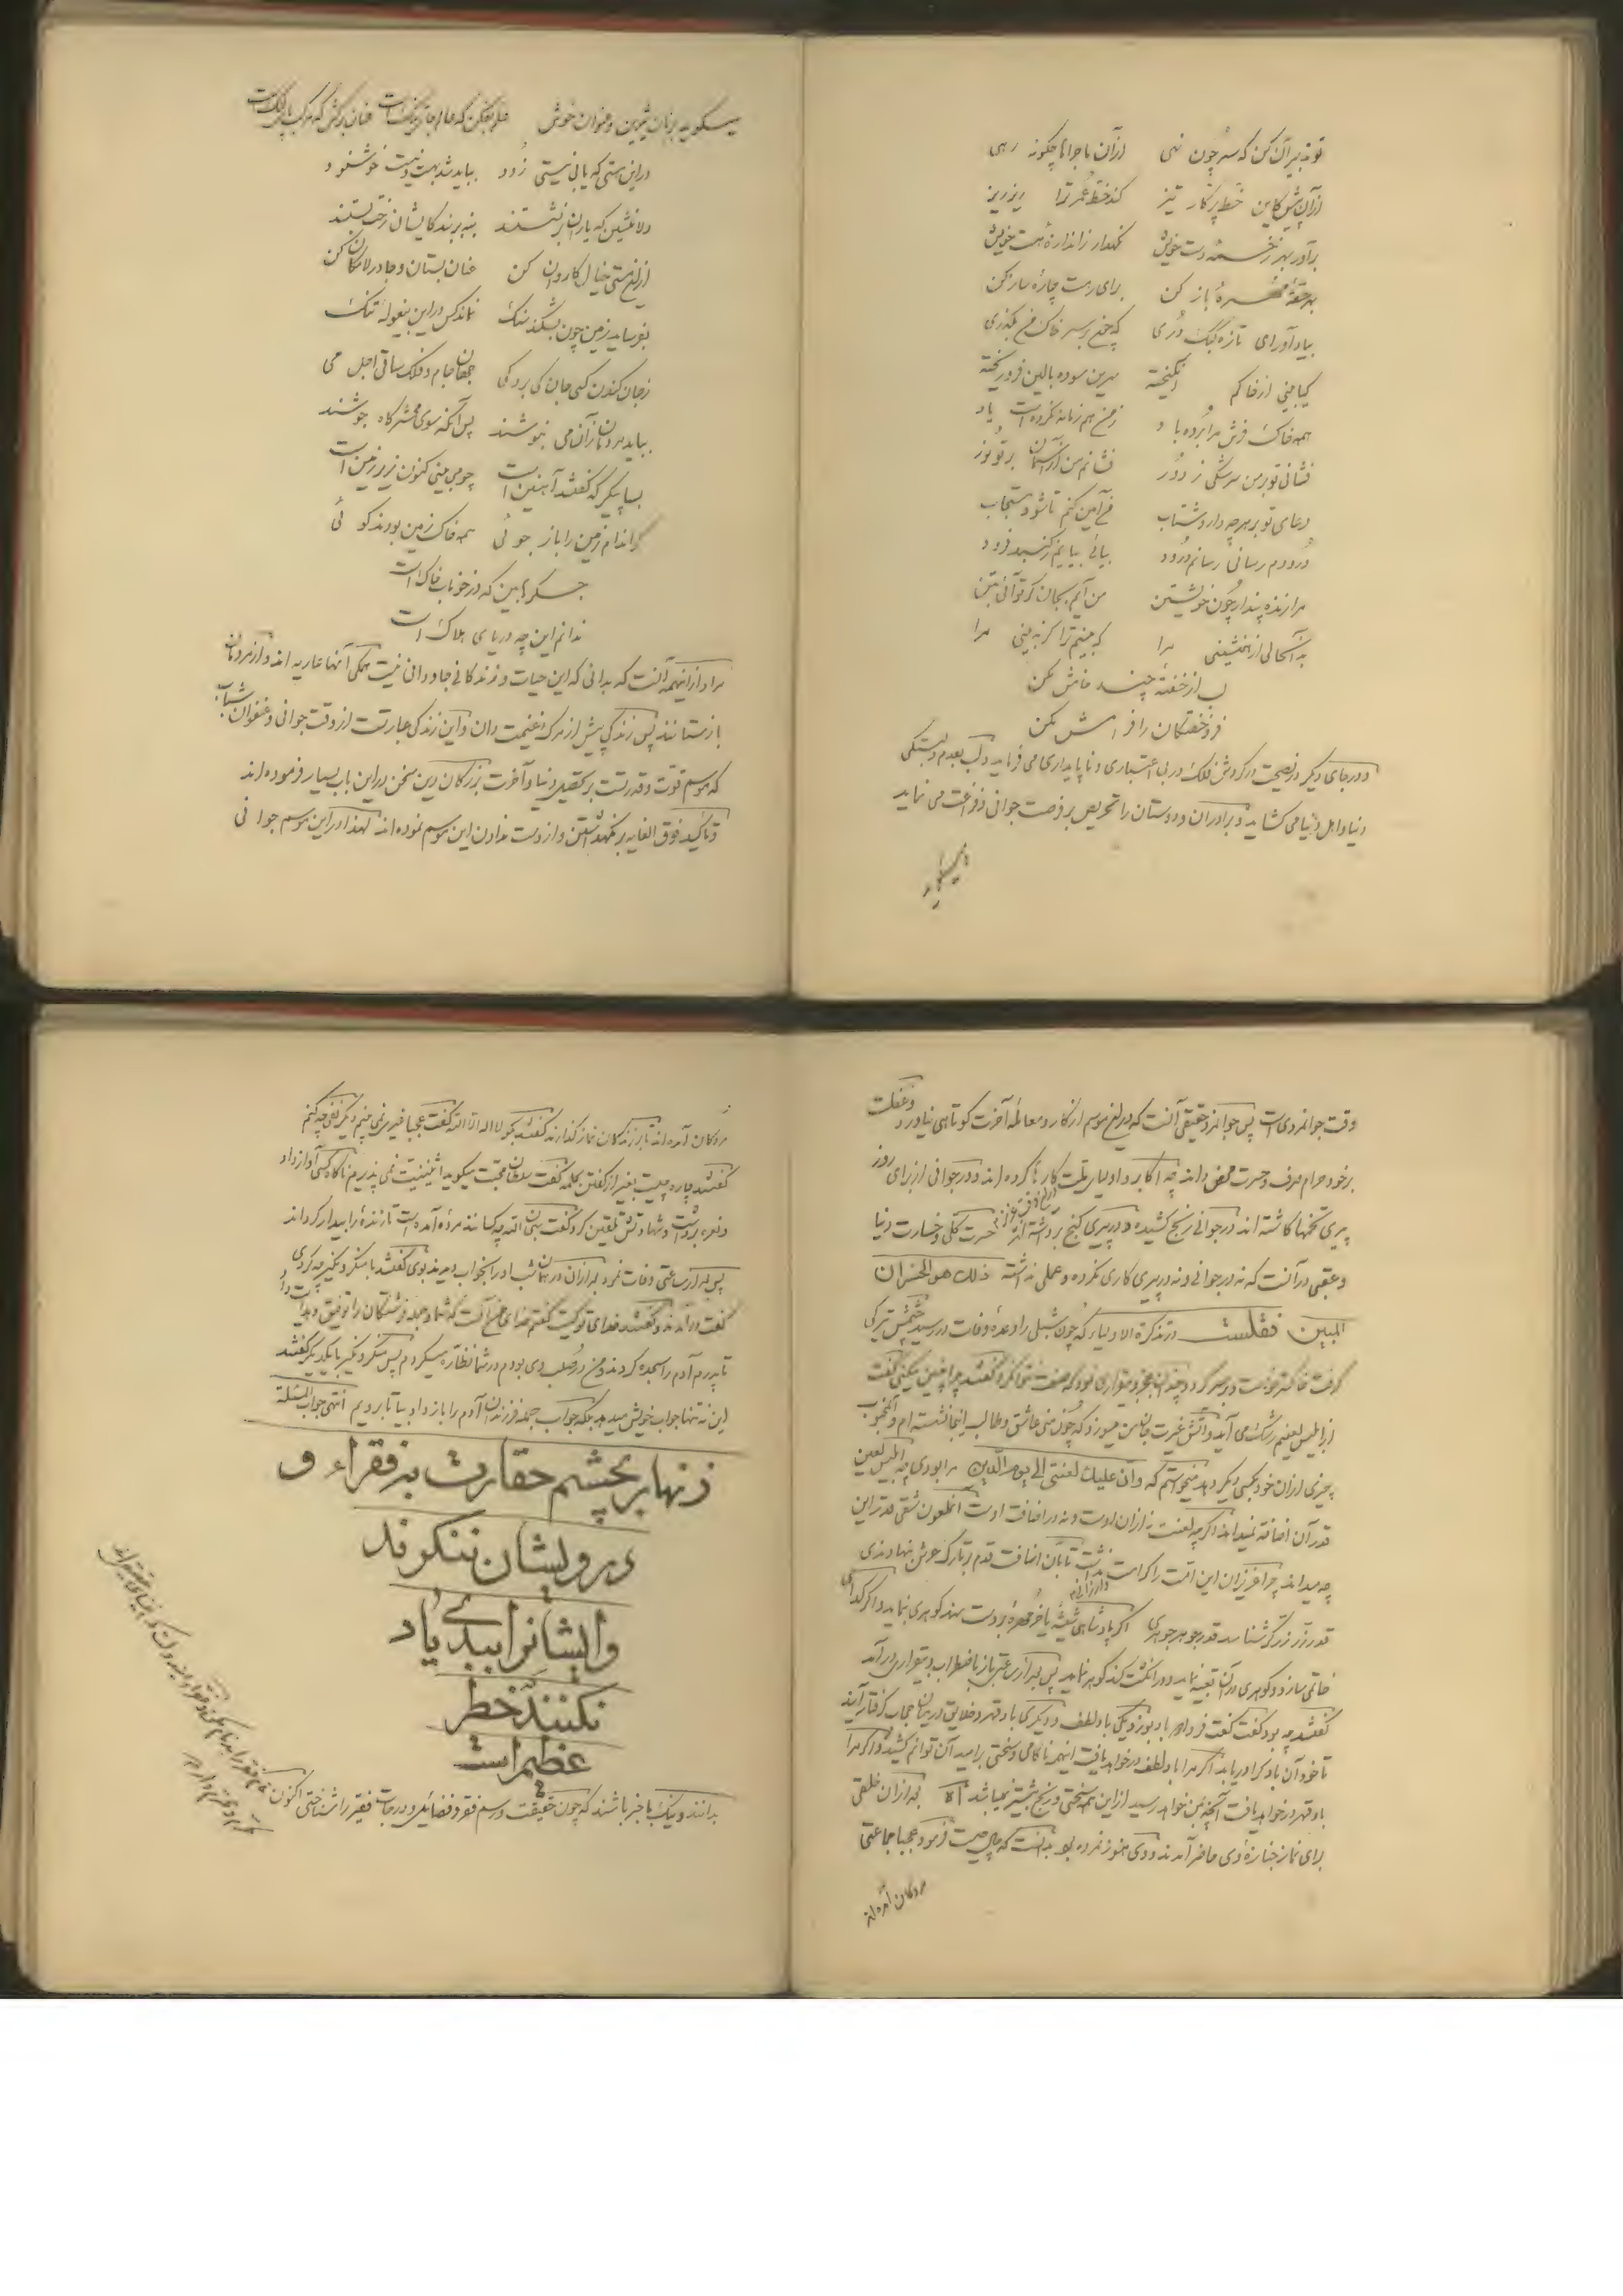 تو تدبیر آن کن که سر چون نهی از آن ماجراها چگونه رهی
از آن پیش کاین خط پرگار تیز کند خط عمر ترا ریز ریز
برآور بهر زخمه دست خویش نگهدار ز اندازهٔ شست خویش
بهر حقه مهرهٔ باز کن برای رهت چارهٔ ساز کن
بیاد آور ای تازه کبک دری که چون بر سر خاک من بگذری
گیا بینی از خاکم انگیخته سرین سوده بالین فرو ریخته
همه خاک فرش مرا برده باد ز من هم زمانه نکرده است یاد
فشانی تو بر من سرشکی ز دور فشانم من از آسمان بر تو نور
دعای تو بر هر چه دارد شتاب من آمین کنم تا شود مستجاب
درودم رسانی رسانم درود بیائی بیایم ز گنبد فرود
مرا زنده پندار چون خویشتن من آیم بجان گر تو آئی بتن
مدان خالی از همنشینی مرا که بینم ترا گر نه بینی مرا
لب از خفتهٔ چند خامش مکن
فرو خفتگان را فرامش مکن
و در جای دیگر در نصیحت در گردش فلک و در بی اعتباری و ناپایداری می فرماید و لب بعدم دلبستگی
دنیا و اهل دنیا می کشاید و برادران و دوستان را تحریص بر فرصت جوانی و فراغت می نماید
میگوید
میگوید بزبان شیرین و عنوان خوش علم بفکن که عالم جای تنگ است عنان درکش که مرکب پای لنگ است
در این هستی که یابی نیستی زود بباید شد بهست و نیست خوشنود
دلا منشین که یاران برنشستند بنه بربند کایشان رخت بستند
از این هستی خیال کاروان کن عنان بستان و جا در لامکان کن
بفرساید زمین چون بشکند سنگ نماند کس در این بیغوله تنگ
ز جان کندن کسی جان کی برد کی جهان جام و فلک ساقی اجل می
بباید مردمان زان می بنوشند پس آنگه سوی محشرگاه جوشند
بسا پیکر که گفتند آهنین است چو می بینی کنون زیر زمین است
گر اندام زمین را باز جوئی همه خاک زمین بودند گوئی
جگرها بین که در خوناب خاک است
ندانم این چه دریای هلاک است
مراد از اینهمه آنست که بدانی که این حیات و زندگانی جاودانی نیست همگی آنها عاریه اند و از مردمان
بازستانند پس زندگی پیش از مرگ غنیمت دان و این زندگی عبارتست از وقت جوانی و عنفوان شباب
که موسم قوت و قدرتست بر تحصیل دنیا و آخرت بزرگان دین سخن در این باب بسیار فرموده اند
و تأکید فوق الغایه بر نگهداشتن و از دست ندادن این موسم نموده اند لهذا در این موسم جوانی
وقت جوانمردی است پس جوانمرد حقیقی آنست که در این موسم از کار و معامله آخرت کوتاهی نیاورد و غفلت
بر خود حرام صرف و حسرت محض داند چه اکابر و اولیای ملت کارها کرده اند و در جوانی از برای روز
پیری تخمها کاشته اند در جوانی رنج کشیده و در پیری گنج برداشته اند حسرت کلی و خسارت دنیا
و عقبی در آنست که نه در جوانی و نه در پیری کاری نکرده و عملی نداشته ذلک هو الخسران
المبین نقلست در تذکرة الاولیا که چون شبلی را وعدهٔ وفات در رسید چشمش تیرگی
گرفت خاکستر خواست و بر سر کرد و چندان عجز و بیقراری نمود که صفت نتوان کرد گفتند چرا چنین میکنی گفت
از ابلیس لعینم رشک می آید و آتش غیرت جان من میسوزد که چون منی عاشق و طالب اینجا نشسته ام و آنمحبوب
چیزی از آن خود بکسی دیگر دهد میخواستم که و ان علیک لعنتی الی یوم الدین مرا بودی چه ابلیس لعین
قدر آن اضافه نمیداند اگر چه لعنت نه از آن اوست و نه در اضافت اوست آنملعون شقی قدر این
چه میداند چرا عزیزان این امت را کرامت نداشت تا بتابان اضافت قدم بر تارک عرش نهادندی
قدر زر زرگر شناسد قدر جوهر جوهری اگر پادشاهی شیشه یا خرمهره بر دست نهد گوهری نماید و اگر گدائی
خاتمی سازد و گوهری در آن تعبیه نماید و در انگشت کند گوهر نماید پس بعد از ساعتی باز باضطراب و بیقراری درآمد
گفتند چه بود گفت گفت فردا هر باد بوزد یکی باد لطف و دیگری باد قهر و خلایق در میان حجاب گرفتار آیند
تا خود آن باد کرا دریابد اگر مرا باد لطف در خواهد یافت اینهمه ناکامی و سختی بر امید آن توانم کشید و اگر مرا
باد قهر در خواهد یافت آنچه بمن خواهد رسید از این همه سختی و رنج بیشتر نمیباشد آه بعد از آن خلقی
برای نماز جنازهٔ وی حاضر آمدند و وی هنوز نمرده بود بدانست که حال چیست فرمود عجبا جماعتی
مردگان آمده اند
مردگان آمده اند تا بر زندگان نماز گذارند گفتند بگو لا اله الا الله گفت عجبا غیری نمی بینم دیگر نفی چه کنم
گفتند چاره چیست بغیر از گفتن کلمه گفت سلطان محبت میگوید اثنینیت نمی پذیرم ناگاه کسی آواز داد
و نعره برداشت و شهادتش تلقین کرد گفت سبحان الله چه کسانند مرده آمده است تا زنده را بیدار گرداند
پس بعد از ساعتی وفات نمود بعد از آن در همان شب او را بخواب دیدند بوی گفتند با منکر و نکیر چه کردی
گفت درآمدند و گفتند خدای تو کیست گفتم خدای من آنست که شما و جمله فرشتگان را توفیق و هدایت داد
تا پدرم آدم را سجده کردند و من در صلب وی بودم در شما نظاره میکردم پس منکر و نکیر با یکدیگر گفتند
این نه تنها جواب خویش میدهد بلکه جواب جمله فرزندان آدم را باز داد بیا تا برویم انتهی جواب المسئلة
زنهار بچشم حقارت بر فقراء و
درویشان ننگرند
و ایشانرا ببدی یاد
نکنند خطر
عظیم است
بدانند و نیک باخبر باشند که چون حقیقت و رسم فقر و فضائل و درجات فقیر را شناختی اکنون